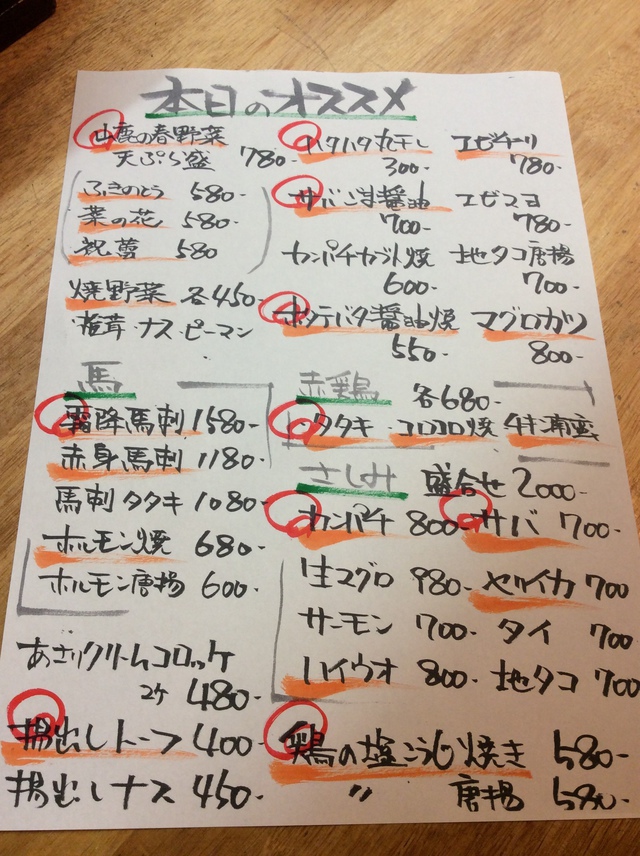 本日のオススメ
山鹿の春野菜
天ぷら盛 780-
ふきのとう 580-
菜の花 580-
祝蕾 580
焼野菜 各450-
椎茸・ナス・ピーマン
馬
霜降馬刺 1580-
赤身馬刺 1180-
馬刺タタキ 1080-
ホルモン焼 680-
ホルモン唐揚 600-
あさりクリームコロッケ
2ケ 480-
揚出しトーフ 400-
揚出しナス 450-
ハタハタ丸干し
300-
サバごま醤油
700-
カンパチカブト焼
600-
ホタテバタ醤油焼
550-
エビチリ
780-
エビマヨ
780-
地タコ唐揚
700-
マグロカツ
800-
赤鶏 各680-
タタキ・コロコロ焼
さしみ 盛合せ 2000-
カンパチ 800- サバ 700-
生マグロ 980- ヤリイカ 700
サーモン 700- タイ 700
ハイウオ 800- 地タコ 700
鶏の塩こうじ焼き 580-
〃 唐揚 580-